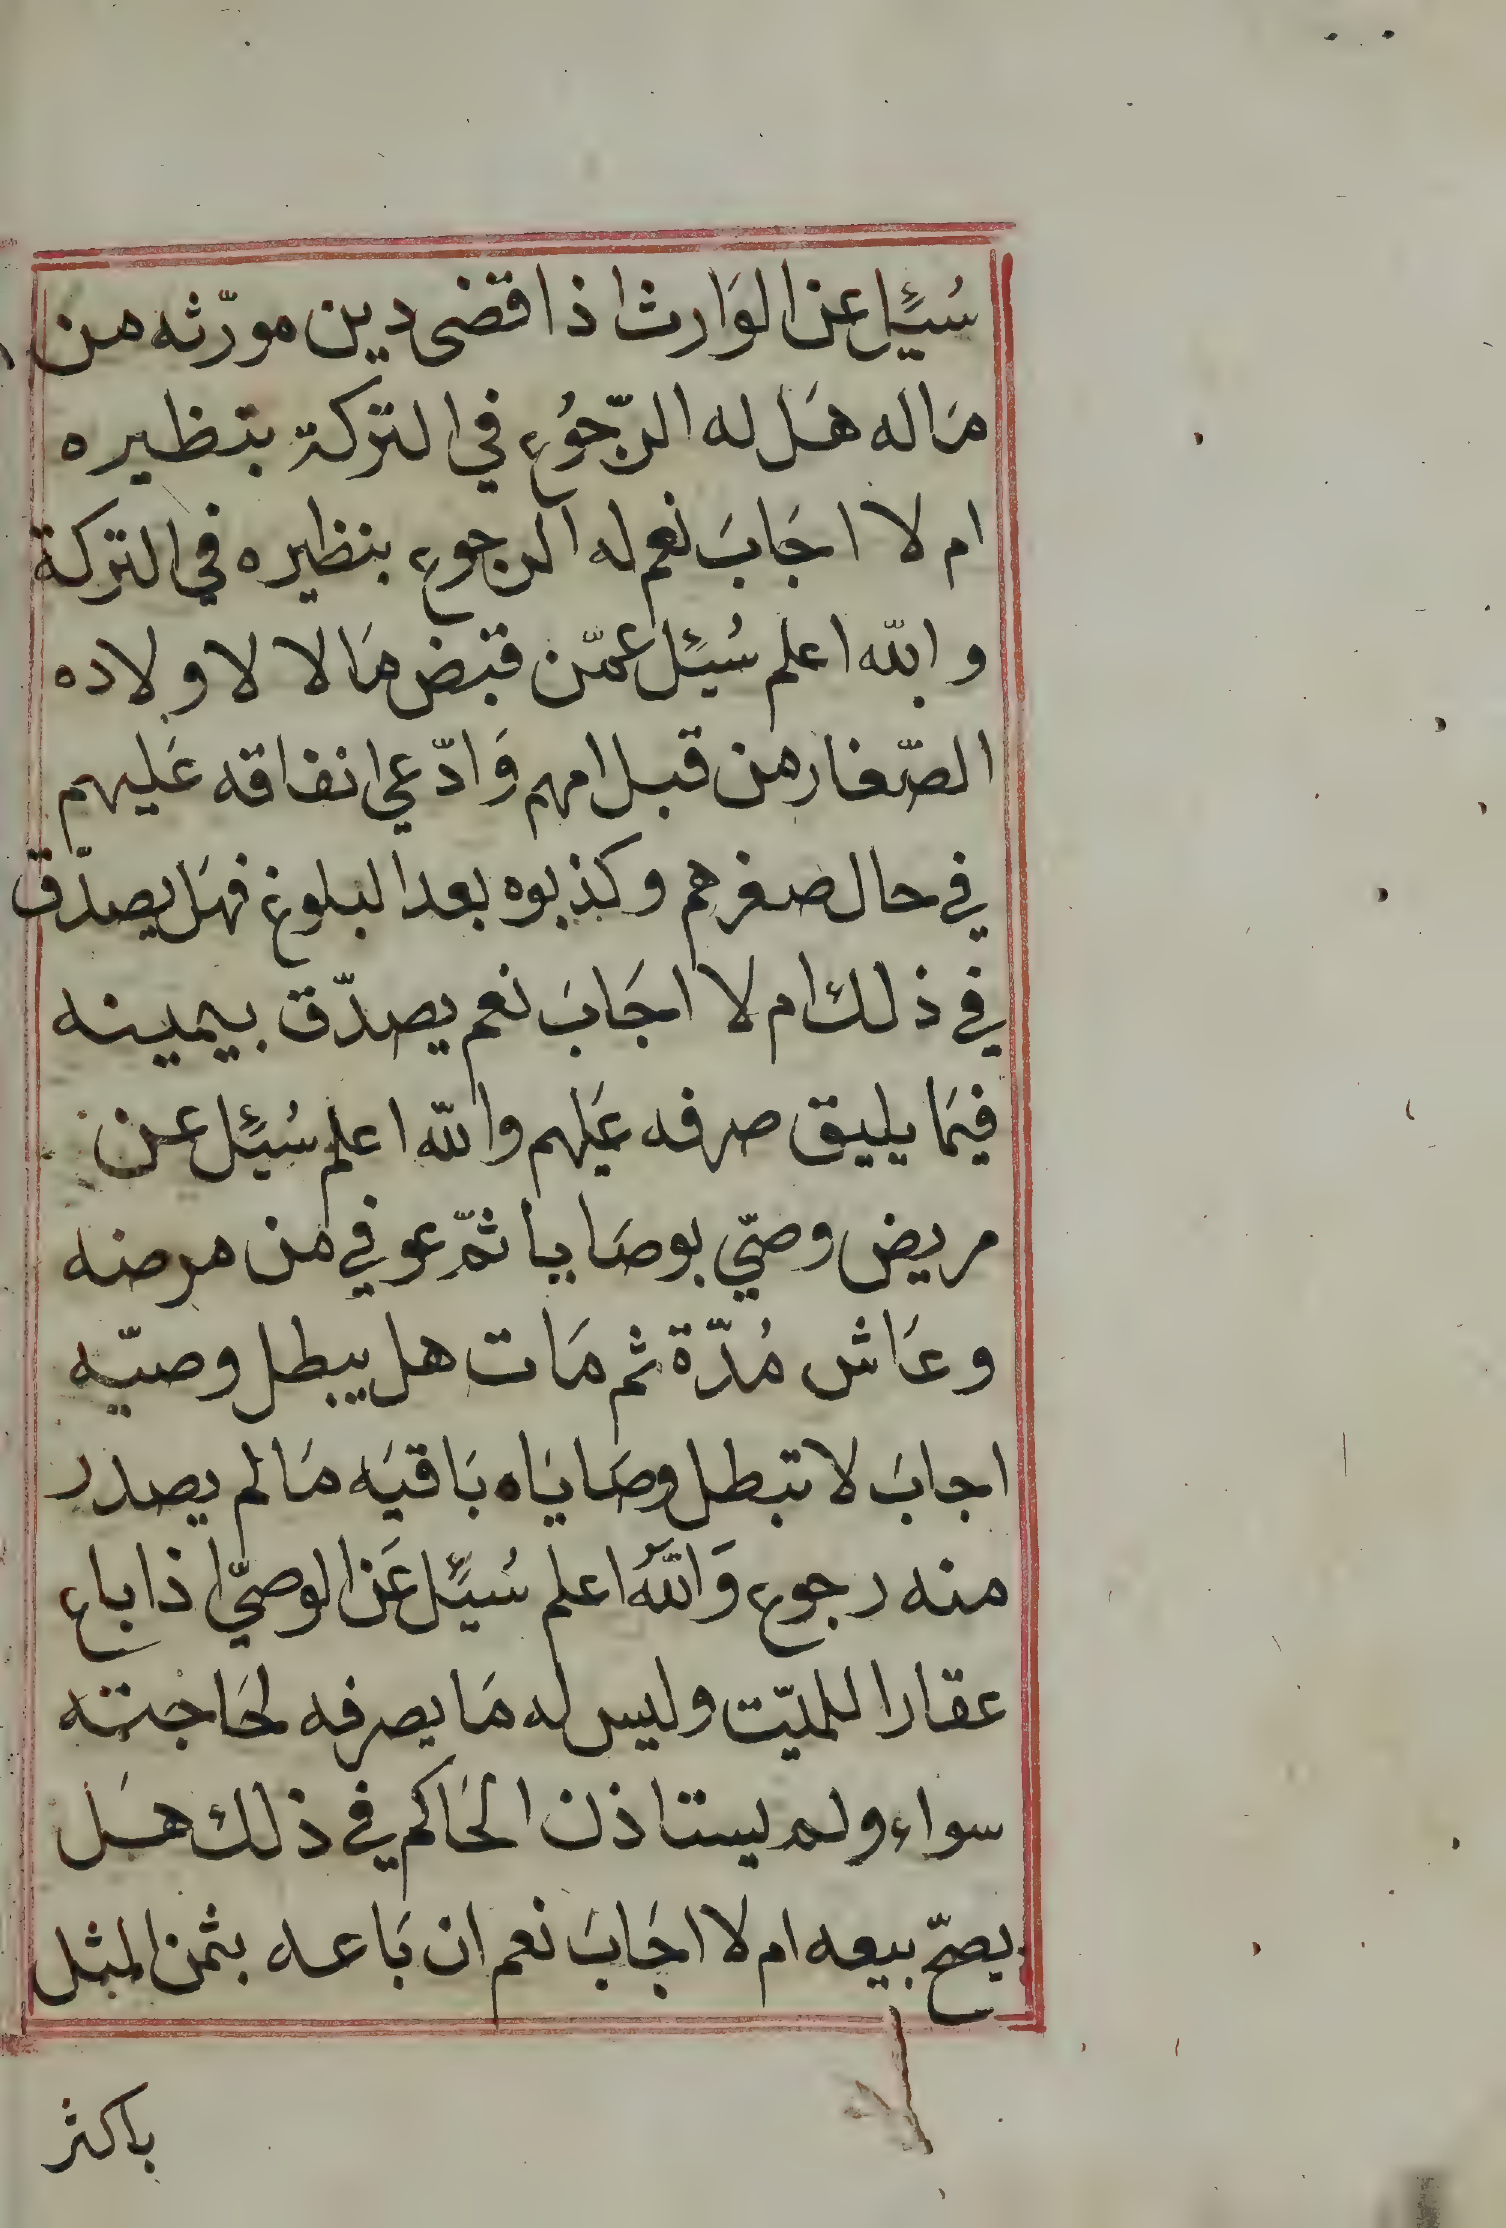 سُئِل عن الوَارث اذا قضى دين مورّثه من
مَاله هَل له الرّجُوع في التركة بنظيره
ام لا اجَابَ نعم له الرجوع بنظيره في التركة
والله اعلم سُئِل عمّن قبض مَالا لاولاده
الصّغار من قبل امهم وَادّعى انفاقه عَليهم
في حال صغرهم وكذبوه بعد البلوغ فهَل يصدّق
في ذلك ام لا اجَابَ نعم يصدّق بيمينه
فيمَا يليق صرفه عَليهم والله اعلم سُئِل عن
مريض وصّي بوصَايا ثمّ عوفي من مرضه
وعَاش مُدّة ثم مَات هل يبطل وصيّه
اجابَ لا تبطل وصَايَاه بَاقيَه مَا لم يصدر
منه رجوع وَاللّهُ اعلم سُئِل عَن الوصيّ اذا باع
عقارا للميّت وليس له مَا يصرفه لحَاجته
سواء ولم يستاذن الحَاكم في ذلك هَل
يصحّ بيعه ام لا اجَابَ نعم ان بَاعه بثمن المثل
باكثر